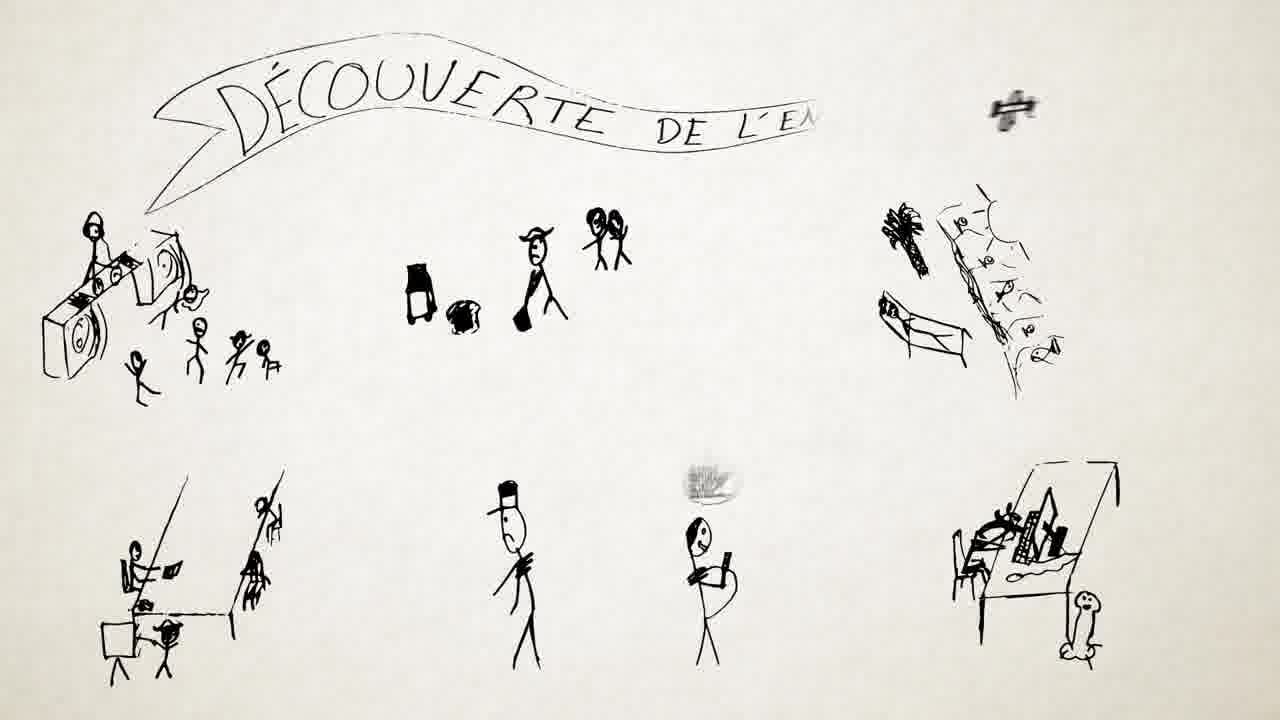 DÉCOUVERTE DE L'EN